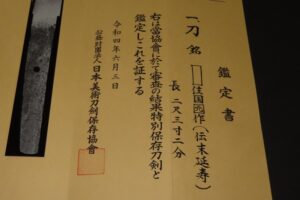 鑑定書
一、刀 銘 住国作(伝末延寿)
長 二尺三寸二分
右は當協會に於て審査の結果特別保存刀剣と
鑑定しこれを証する
令和四年六月三日
公益財団法人 日本美術刀剣保存協會